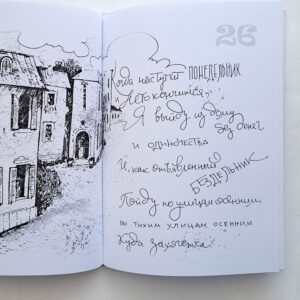 26
Когда наступит ПОНЕДЕЛЬНИК
и лето кончится,
Я выйду из дому
без денег
и одиночества
И, как отъявленный
БЕЗДЕЛЬНИК
Пойду по улицам осенним,
по тихим улицам осенним
Куда захочется.